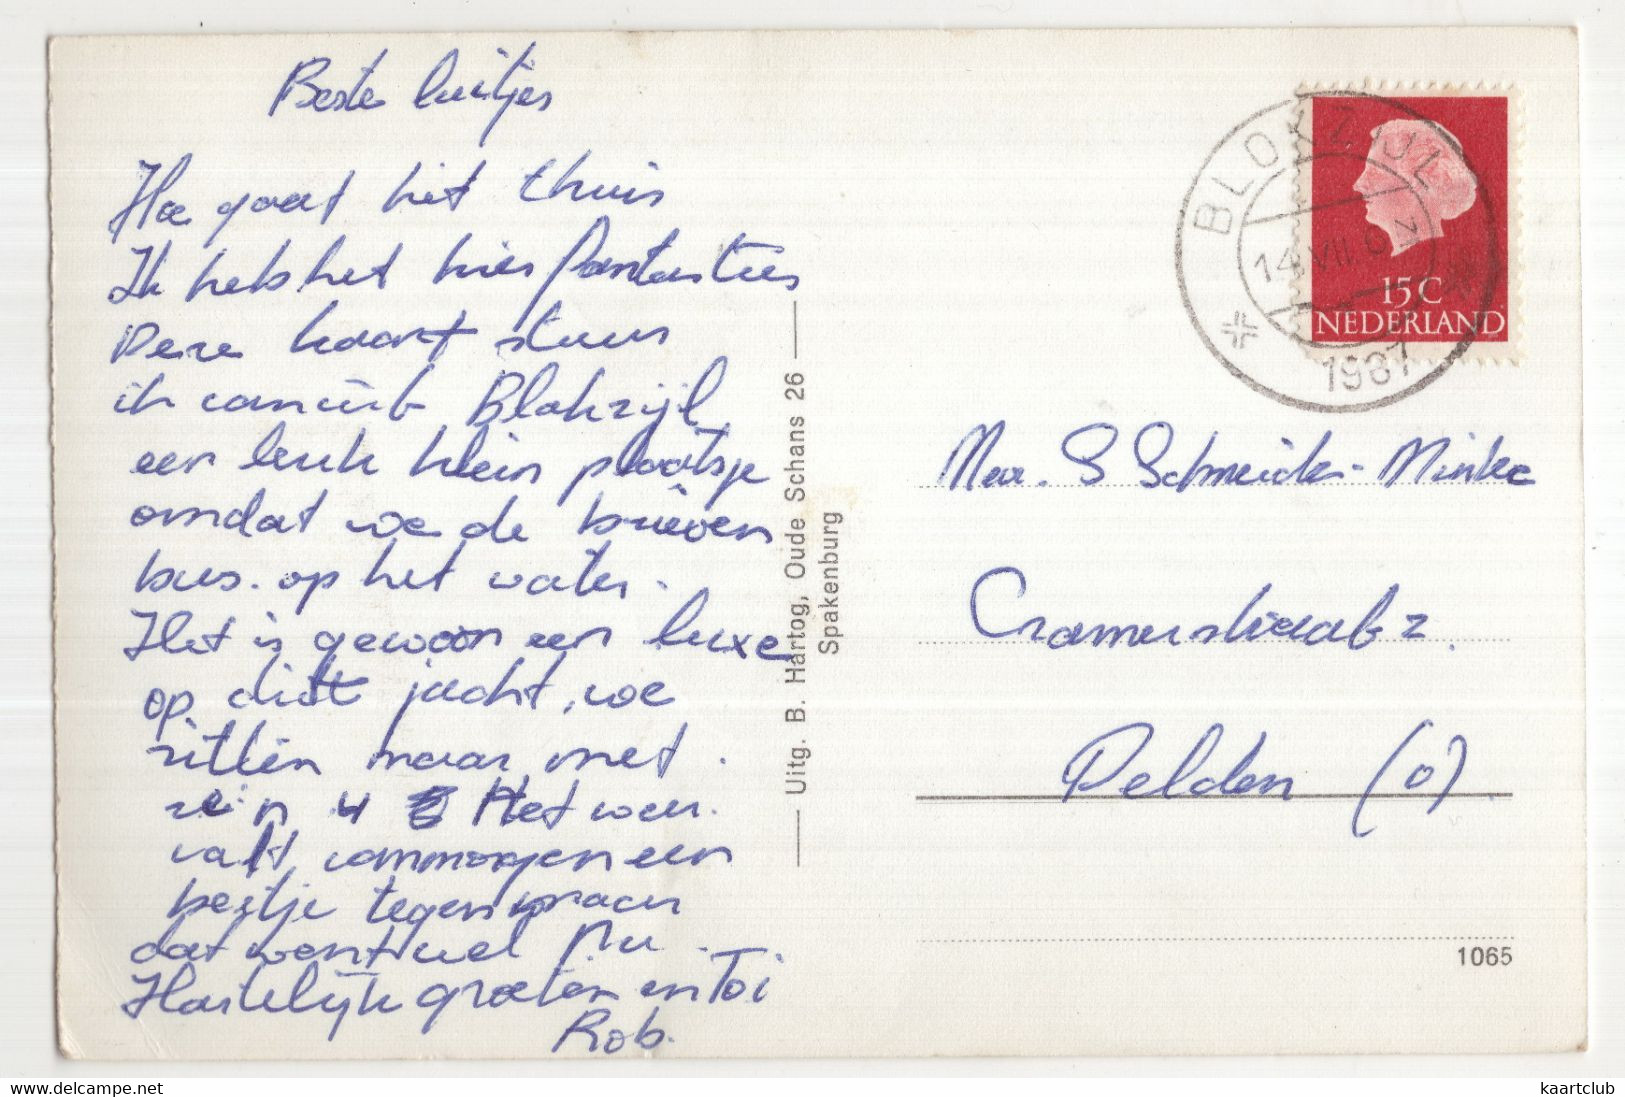 Beste luitjes
Hoe gaat het thuis
Ik heb het hier fantasties
Deze kaart stuur
ik vanuit Blokzijl
een leuk klein plaatsje
omdat we de brieven
bus. op het water.
Het is gewoon een luxe
op dit jacht, we
zitten maar met
zein 4 Het weer.
valt vanmorgen een
beetje tegen maar
dat went wel nu.
Hartelijk groeten en Toi
Rob.
Uitg. B. Hartog, Oude Schans 26
Spakenburg
BLOKZIJL
14 VII.6
1967
15 C
NEDERLAND
Mevr. S Schneider-Minke
Cramerstraat 2.
Delden (O).
1065
www.delcampe.net
kaartclub